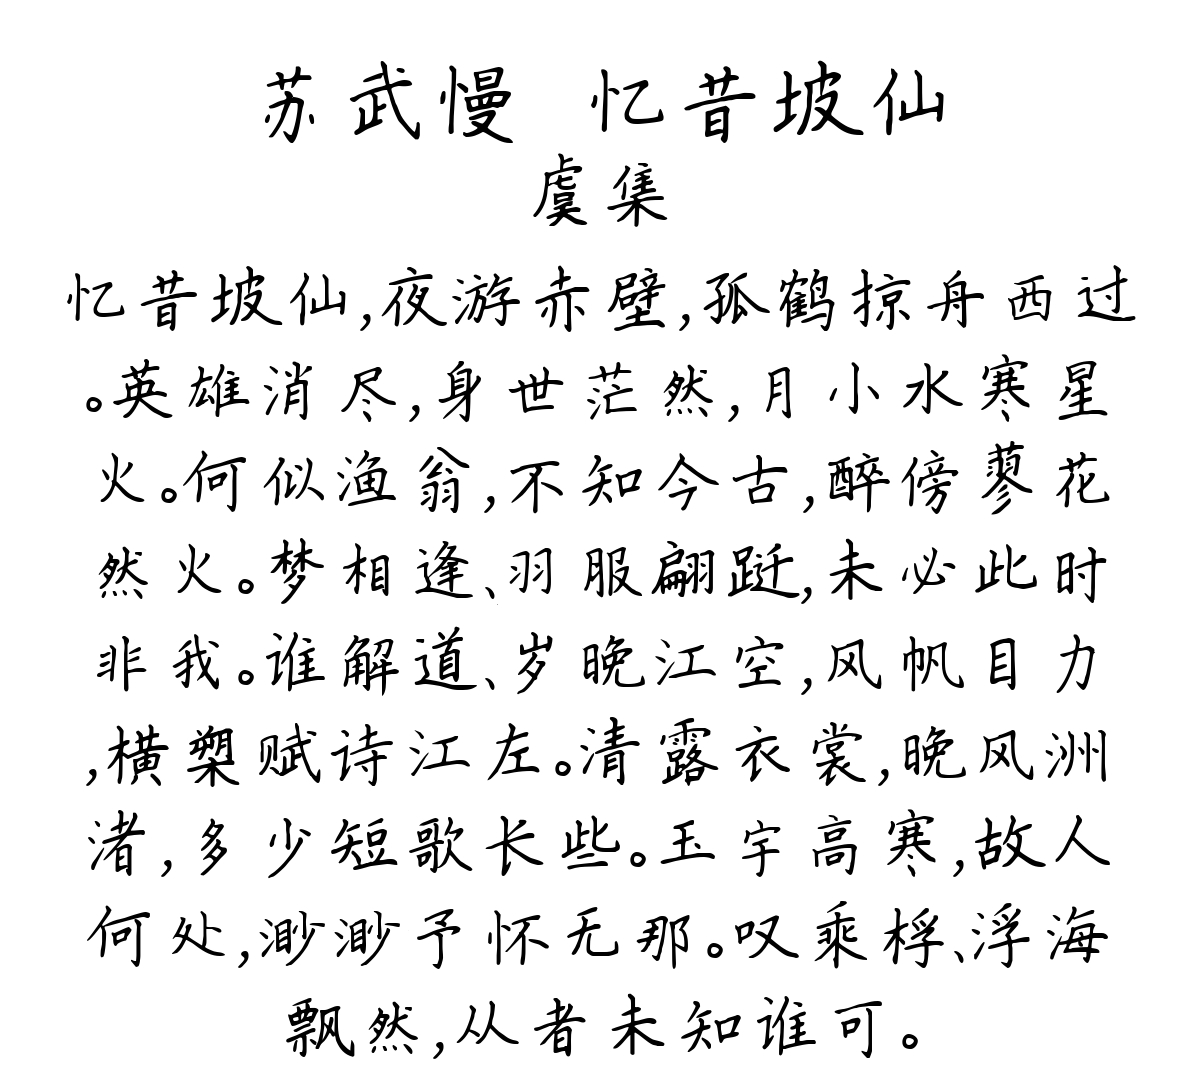 苏武慢 忆昔坡仙
虞集
忆昔坡仙,夜游赤壁,孤鹤掠舟西过
。英雄消尽,身世茫然,月小水寒星
火。何似渔翁,不知今古,醉傍蓼花
然火。梦相逢、羽服翩跹,未必此时
非我。谁解道、岁晚江空,风帆目力
,横槊赋诗江左。清露衣裳,晚风洲
渚,多少短歌长些。玉宇高寒,故人
何处,渺渺予怀无那。叹乘桴、浮海
飘然,从者未知谁可。